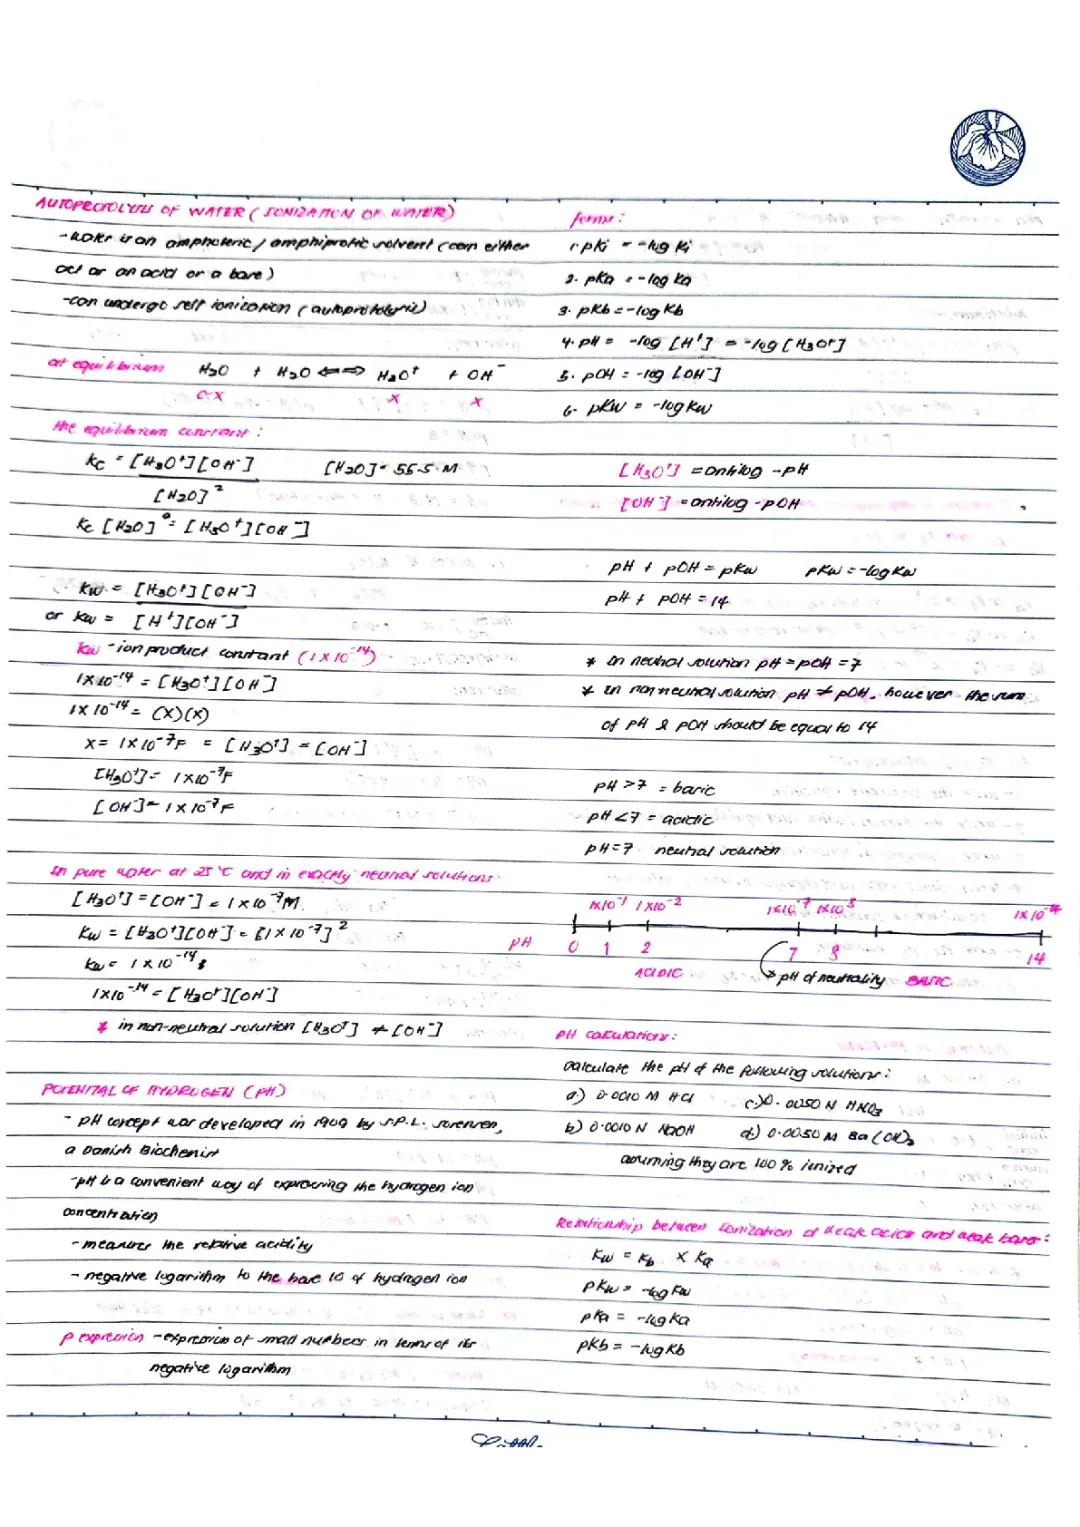 AUTOPROTOLYSIS OF WATER (IONIZATION OF WATER)
- water is an amphoteric / amphiprotic solvent (can either
act as an acid or a base)
- can undergo self ionization (autoprotolysis)
at equilibrium H2O + H2O ⇌ H3O+ + OH-
c-x x x
the equilibrium constant :
Kc = [H3O+][OH-] [H2O] = 55.5 M
[H2O]2
Kc [H2O]2 = [H3O+][OH-]
Kw = [H3O+][OH-]
or Kw = [H+][OH-]
Kw - ion product constant (1x10-14)
1x10-14 = [H3O+][OH]
1x10-14 = (x)(x)
x = 1x10-7F = [H3O+] = [OH-]
[H3O+] = 1x10-7F
[OH-] = 1x10-7F
In pure water at 25 °C and in exactly neutral solutions
[H3O+] = [OH-] = 1x10-7M
Kw = [H3O+][OH-] = [1x10-7]2
Kw = 1x10-14
1x10-14 = [H3O+][OH-]
* in non-neutral solution [H3O+] ≠ [OH-]
POTENTIAL OF HYDROGEN (PH)
- pH concept was developed in 1909 by S.P.L. Sorensen,
a Danish Biochemist
- pH is a convenient way of expressing the hydrogen ion
concentration
- measures the relative acidity
- negative logarithm to the base 10 of hydrogen ion
p expression - expression of small numbers in terms of its
negative logarithm
forms :
1. pKi = -log Ki
2. pKa = -log Ka
3. pKb = -log Kb
4. pH = -log [H+] = -log [H3O+]
5. pOH = -log [OH-]
6. pKw = -log Kw
[H3O+] = antilog -pH
[OH-] = antilog -pOH
pH + pOH = pKw pKw = -log Kw
pH + pOH = 14
* In neutral solution pH = pOH = 7
* In non neutral solution pH ≠ pOH, however the sum
of pH & pOH should be equal to 14
pH > 7 = basic
pH < 7 = acidic
pH = 7 neutral solution
1x10-1 1x10-2 1x10-7 1x10-8 1x10-14
pH 0 1 2 7 8 14
ACIDIC pH of neutrality BASIC
pH calculations :
Calculate the pH of the following solutions :
a) 0.0010 M HCl c) 0.0050 N HNO3
b) 0.0010 N NaOH d) 0.0050 M Ba(OH)2
assuming they are 100 % ionized
Relationship between Ionization of Weak acids and weak bases :
Kw = Kb x Ka
pKw = -log Kw
pKa = -log Ka
pKb = -log Kb